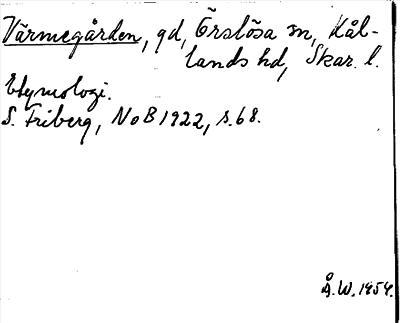 Värmegården, gd, Örslösa sn, Kål-
lands hd, Skar. l.
Etymologi.
S. Friberg, NoB 1922, s. 68.
Å. W. 1954.